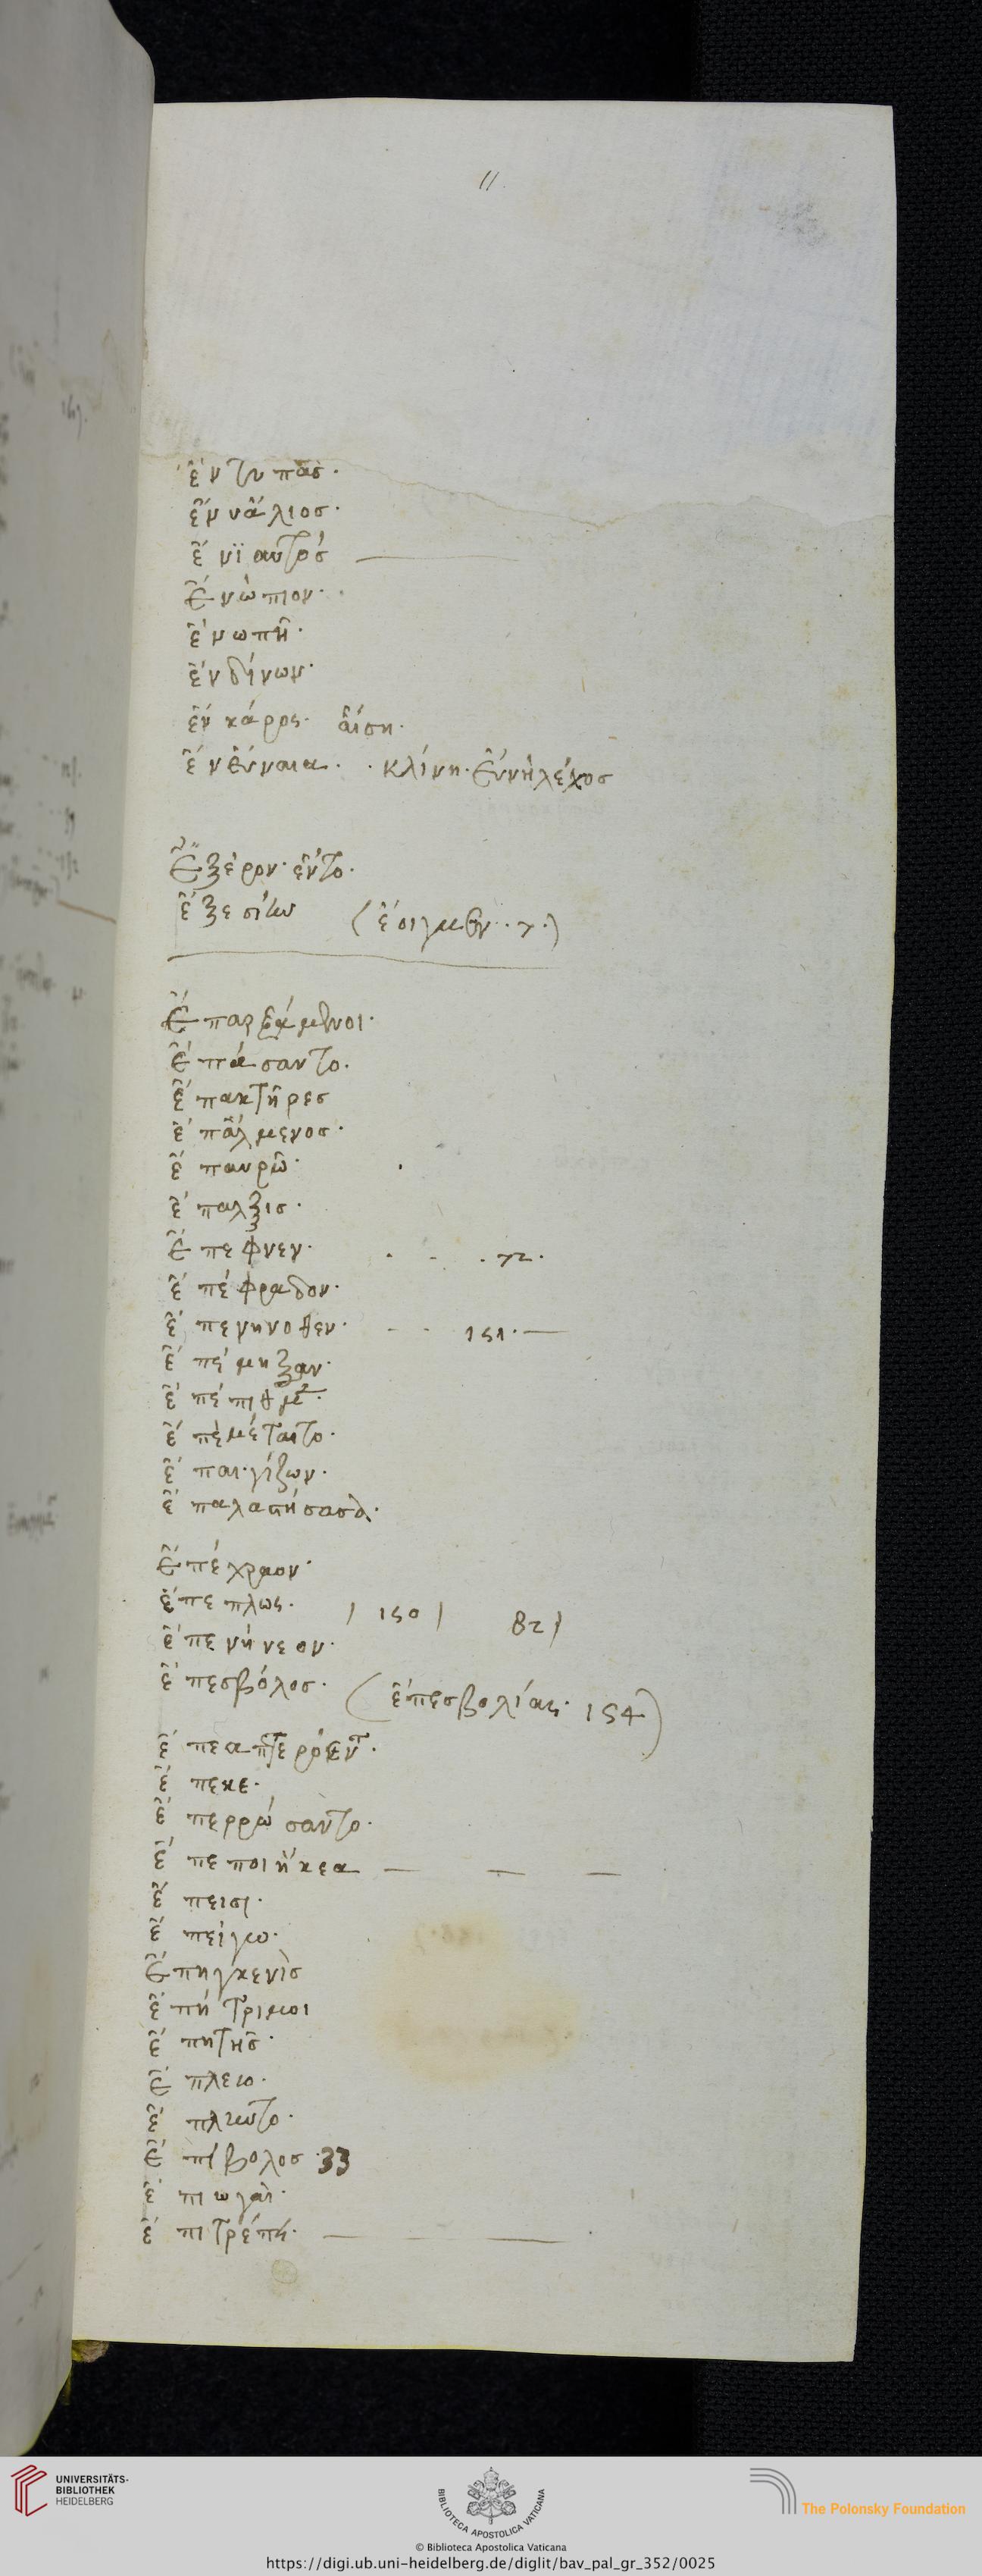 11
ἐντυπάς·
ἐννάλιος·
ἐνϊαυτός
Ἐνώπιον·
ἐνωπῆ·
ἐνδίνων·
ἐν κάρος· ἄιση·
ἐνεύναια· κλίνη· Ἐυνὴ λέχος
Ἐξέρον· ἐντο·
ἐξεσίην
Ἐπαρξάμενοι·
Ἐπάσαντο·
ἐπακτῆρες
ἐπάλμενος·
ἐπαυρῶ·
ἐπαλξις·
Ἐπεφνεν· 72·
ἐπέφραδον·
ἐπενηνοθεν· 151·
ἐπέμηξαν·
ἐπέπιθμ·
ἐπαιγίζων·
Ἐπέχραον·
ἐπεπλως· 150 82
ἐπενήνεον·
ἐπεσβόλος· (ἐπεσβολίας· 154)
ἐπεα πτερόεντ·
ἐπεκε·
ἐπερρώσαντο·
ἐπεποιήκεα
ἐπεισι·
ἐπείγω·
Ἐπηγκενὶς
ἐπήτριμοι
ἐπητής·
Ἐπλεω·
ἐπληντο·
Ἐπίβολος 33
ἐπιωγαὶ·
ἐπιτρέπη·
UNIVERSITÄTS-
BIBLIOTHEK
HEIDELBERG
BIBLIOTECA APOSTOLICA VATICANA
The Polonsky Foundation
© Biblioteca Apostolica Vaticana
https://digi.ub.uni-heidelberg.de/diglit/bav_pal_gr_352/0025